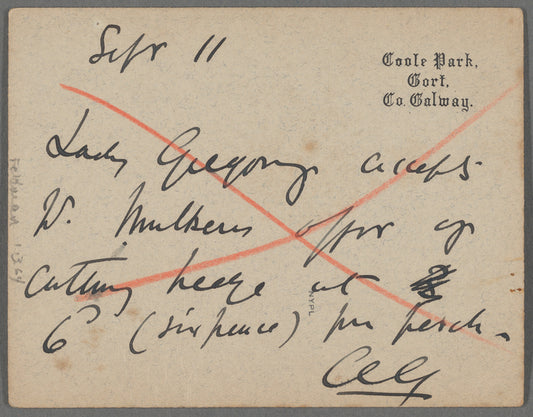 Sepr 11
Coole Park,
Gort,
Co. Galway.
Lady Gregory accepts
W. Mulkerns offer of
cutting hedge at
6D (sixpence) per perch -
AG
Feldman 1.3.64
NYPL